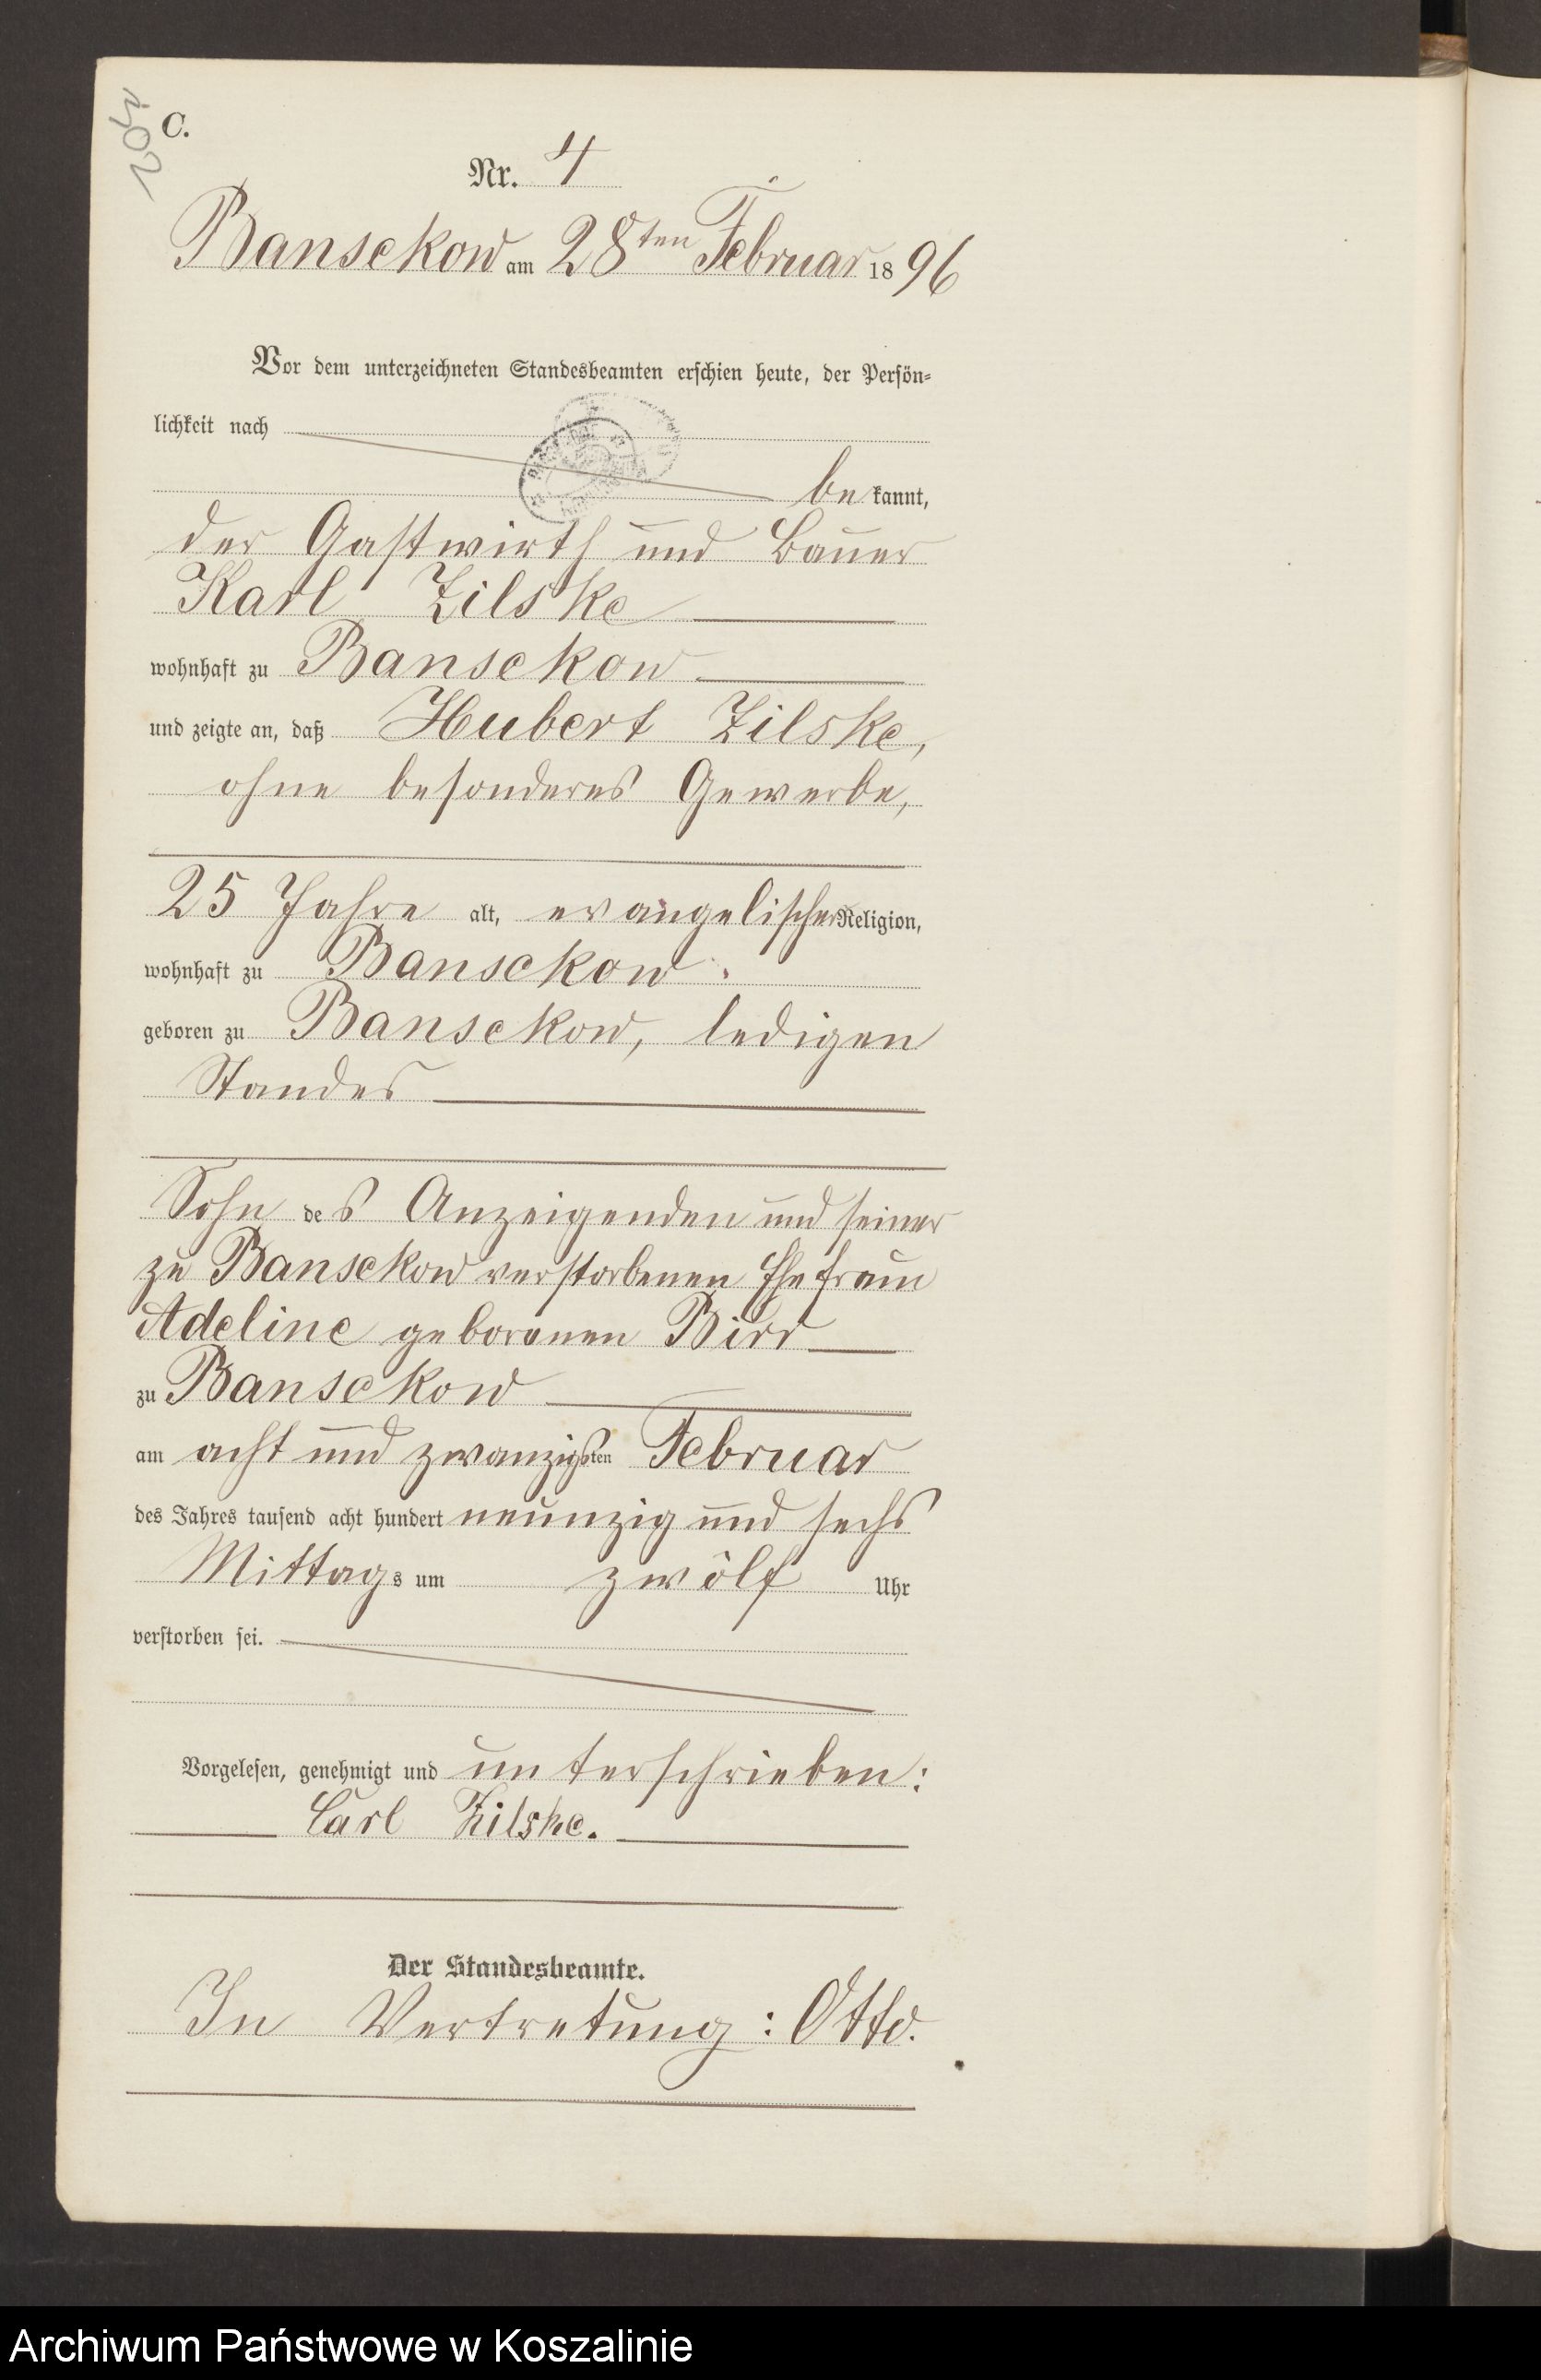 C.
Nr. 4
Bansekow am 28ten Februar 1896
Vor dem unterzeichneten Standesbeamten erschien heute, der Persön-
lichkeit nach
bekannt,
der Gastwirth und Bauer
Karl Zilske
wohnhaft zu Bansekow
und zeigte an, daß Hubert Zilske,
ohne besonderes Gewerbe,
25 Jahre alt, evangelischer Religion,
wohnhaft zu Bansekow
geboren zu Bansekow, ledigen
Standes
Sohn des Anzeigenden und seiner
zu Bansekow verstorbenen Ehefrau
Adeline geborenen Birr
zu Bansekow
am acht und zwanzigsten Februar
des Jahres tausend acht hundert neunzig und sechs
Mittags um zwölf Uhr
verstorben sei.
Vorgelesen, genehmigt und unterschrieben:
Carl Zilske.
Der Standesbeamte.
In Vertretung: Otto.
Archiwum Państwowe w Koszalinie